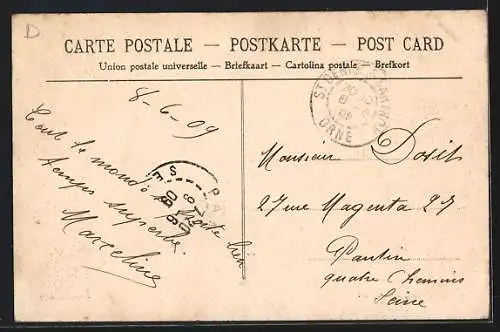 D
CARTE POSTALE — POSTKARTE — POST CARD
Union postale universelle. — Briefkaart — Cartolina postale — Brefkort
8-6-09
Tout le monde se porte bien
temps superbe.
Marceline
ST DENIS
ORNE
Monsieur Dosit
27 rue Magenta 27
Pantin
quatre Chemins
Seine